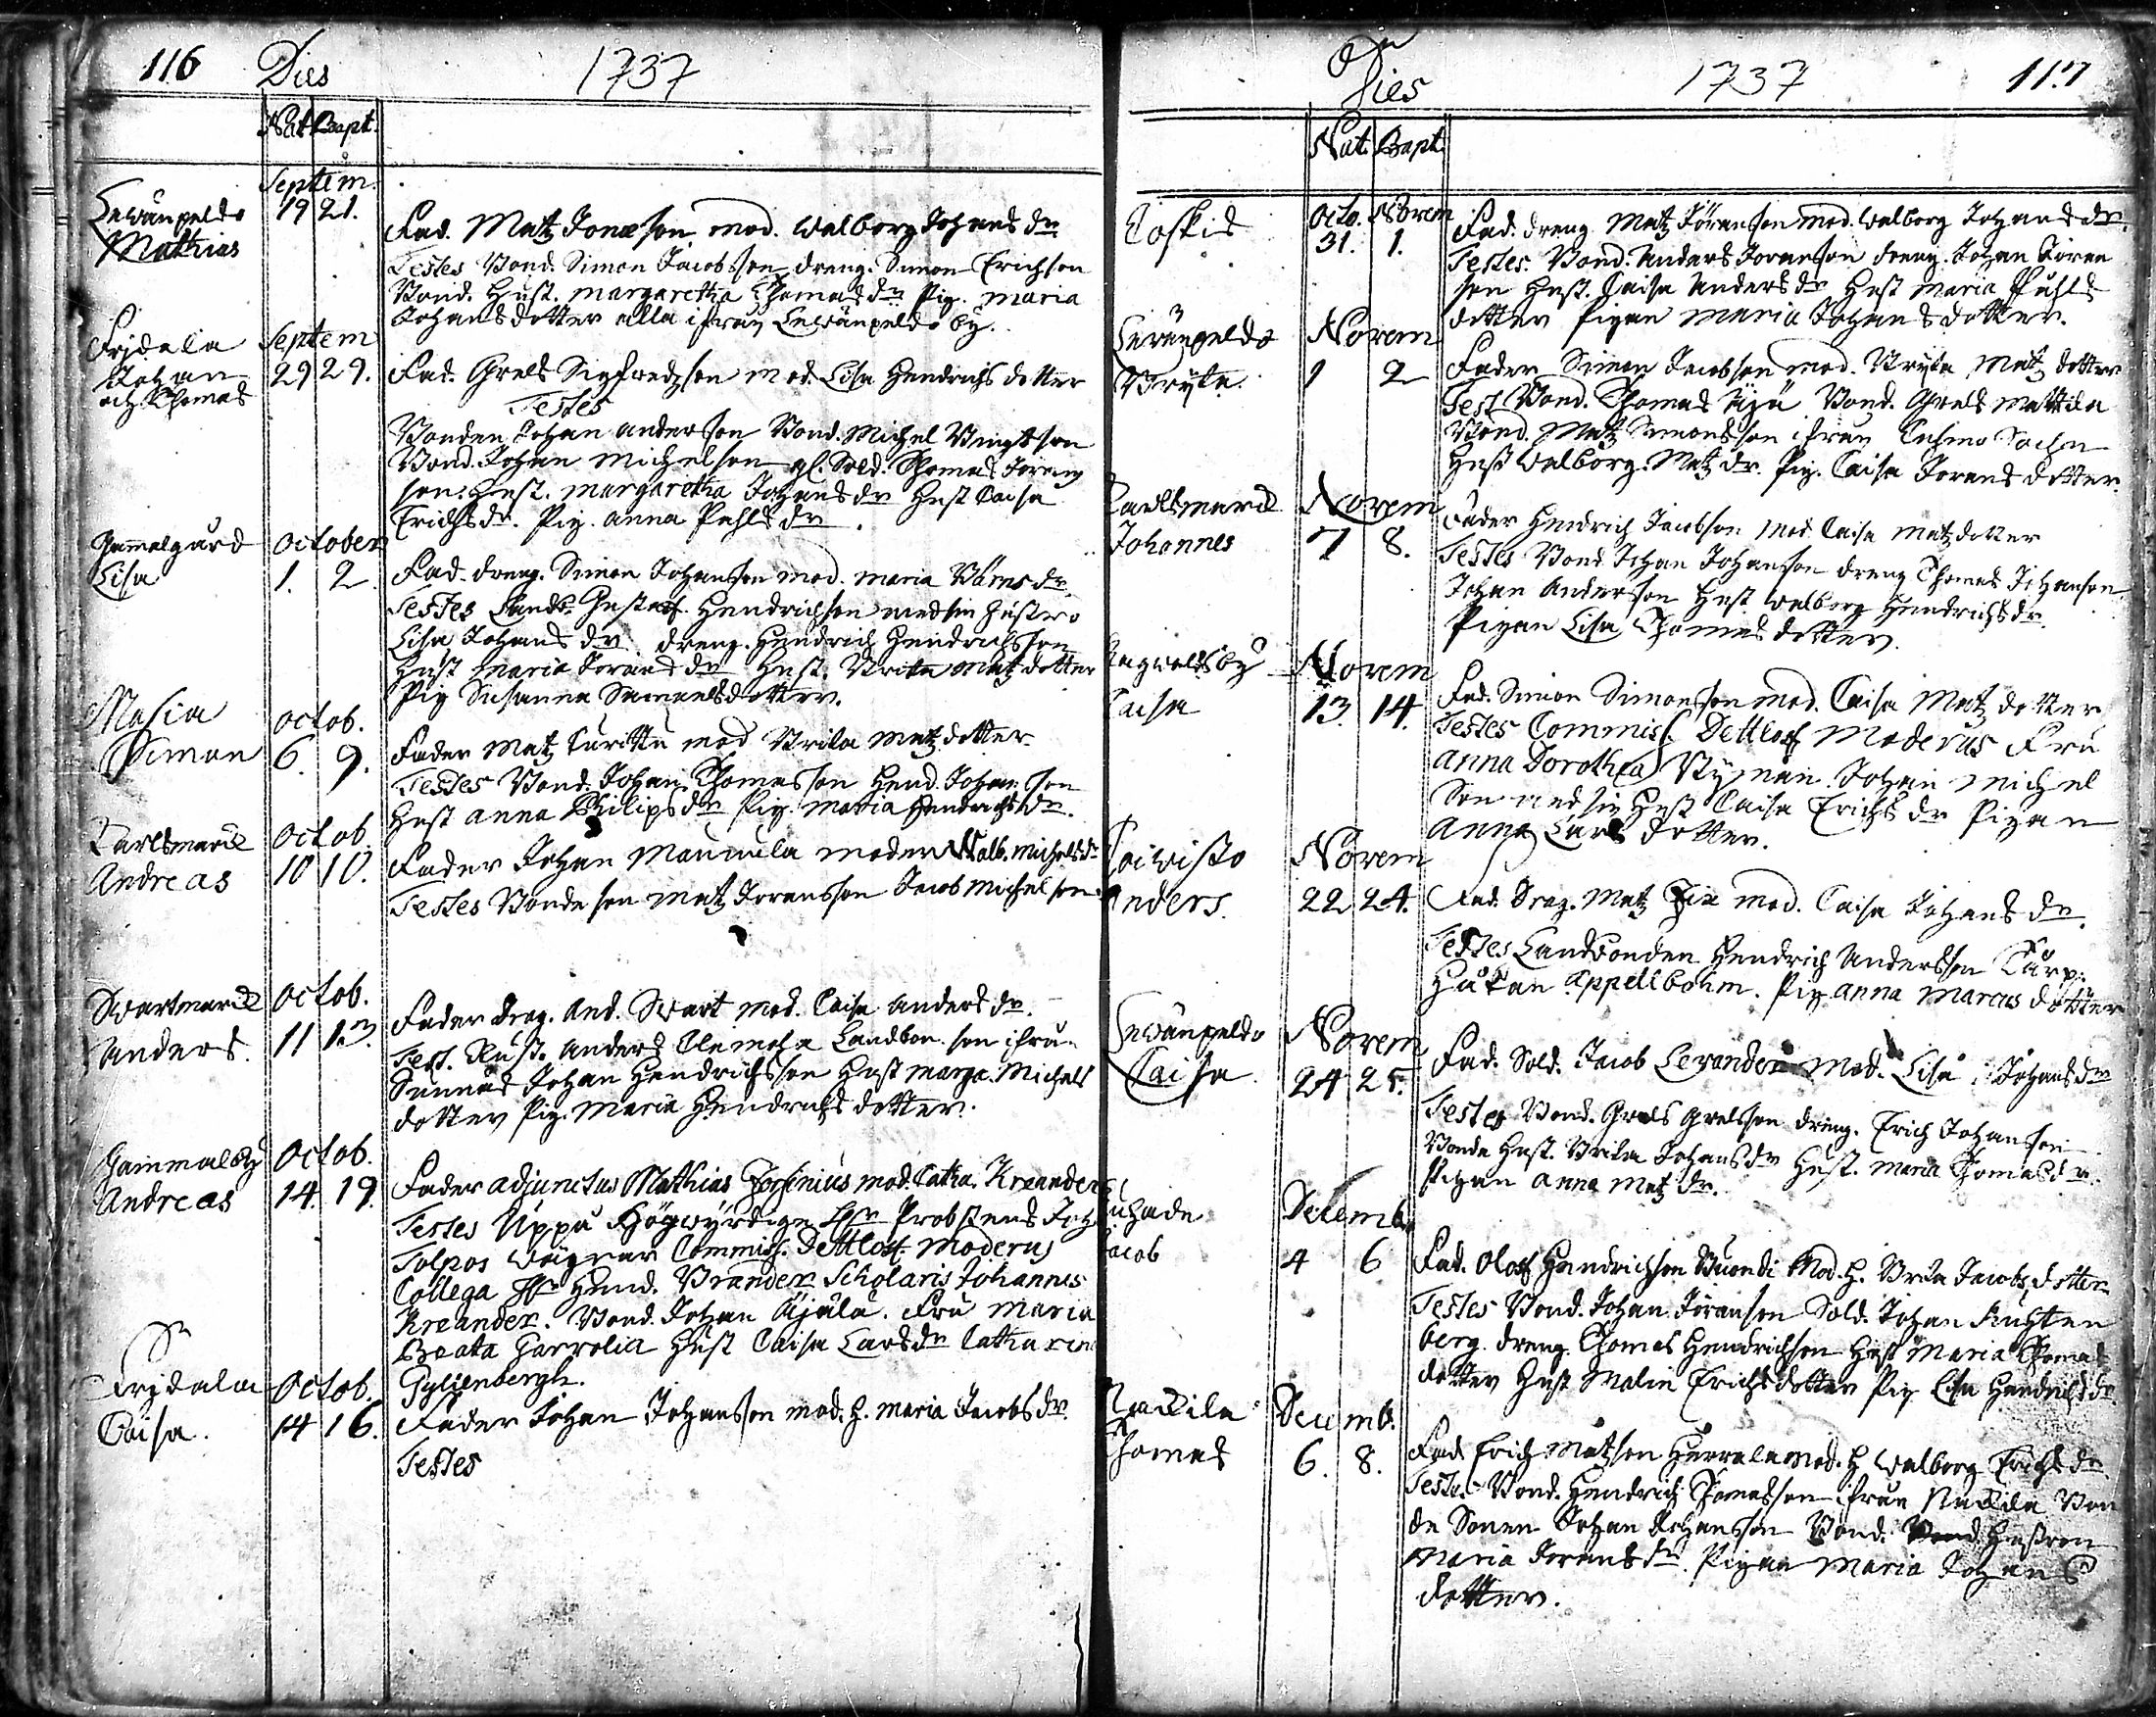 116 Dies 1737
Nat Bapt.
Septem.
19 21.
Mathias
Fad. Matz Jonæson mod. Walborg Johansdr
Testes Bond. Simon Jacobsson dreng. Simon Erichson
Bond. Hust. margaretha Thomasdr Pig. maria
Johansdotter alla ifrån by.
Frjdala Septem
Johan 29 29.
och Thomas
Fad. Grels Sigfredson mod. Lisa Hendrichsdotter
Testes
Bonden Johan anderson Bond. Michel
Bond. Johan Michelson gl. Sold. Thomas Joran
son. Hust. margaretha Johansdr Hust Caisa
Erichsdr. Pig. anna Pahlsdr
Gammelgård October
Lisa 1. 2.
Fad. dreng. Simon Johansson mod. maria
Testes Landb. Gustaf Hendrichson med sin hustro
Lisa Johansdr. dreng. Hendrich Hendrichsson
Hust Maria Joransdr Hust. Brita Matzdotter
Pig Susanna Samuelsdotter.
Masia octob.
Simon 6. 9.
Fader Matz mod Brita Matzdotter
Testes Bond. Johan Thomasson Hend. Johansson
Hust anna Philipsdr Pig. maria Hendrichsdr.
Karlsmark Octob.
Andreas 10 10.
Fader Johan Maunula moder Walb. Michelsdr
Testes Bondeson Matz Joransson Jacob Michelson
Swartmark Octob.
Anders. 11 13.
Fader Drag. And. Swart mod. Caisa Andersdr.
Test. Rust. Anders Landbon. son ifrån
Johan Hendrichsson Hust Marga. Michels
dotter Pig. Maria Hendrichsdotter.
Gammalby Octob.
Andreas 14. 19.
Fader adjunctus Mathias mod. Catha. Kreander
Testes Uppå Högwyrdige Hr Probstens Joh.
Tolpos wägnar Commiss. Dettloff Moderus
Collega Hr Hend. Brander Scholaris Johannes
Kreander. Bond. Johan Äjälä. Fru Maria
Beata Garvolia Hust Caisa Larsdr Catharina
Gyllenbergh.
Frjdala Octob.
Caisa. 14 16.
Fader Johan Johansson mod. H. maria Jacobsdr.
Testes
Dies 1737 117
Nat. Bapt.
Koskis Octo. Novem
31. 1.
Fad. dreng. Matz Joranson mod. Walborg Johansdr.
Testes. Bond. Anders Joranson dreng. Johan Joran
son Hust. Caisa Andersdr Hust Maria Pahls
dotter Pigan Maria Johansdotter.
Novem
Bryta. 1 2
Fader Simon Jacobson mod. Bryta Matzdotter
Test Bond. Thomas Äjä Bond. Grels Mattila
Bond. Matz Simonsson ifrån Sochn
Hust Walborg. Matzdr. Pig. Caisa Joransdotter.
Karlsmark Novem
Johannes 7 8.
Fader Hendrich Jacobson Mod. Caisa Matzdotter
Testes Bond Johan Johanson dreng Thomas Johanson
Johan Anderson Hust Walborg Hendrichsdr.
Pigan Lisa Thomasdotter.
Novem
Caisa 13. 14.
Fad. Simon Simonsson mod. Caisa Matzdotter
Testes Commiss. Dettloff Moderus Fru
Anna Dorothea Nyman. Johan Michel
Son med sin Hust Caisa Erichsdr Pigan
Anna Larsdotter.
Koiwisto Novem
Anders. 22 24.
Fad. Drag. Matz Fix mod. Caisa Johansdr.
Testes Landbonden Hendrich Andersson
Håkan Appellbohm. Pig Anna Marcusdotter
Novem
Caisa. 24 25.
Fad. Sold. Jacob Levander Mod. Lisa Johansdr
Testes Bond. Grels Grelsson dreng. Erich Johansson
Bonde Hust. Brita Johansdr Hust. Maria Thomasdr.
Pigan anna Matzdr.
Decemb.
Jacob 4 6
Fad. Oloff Hendrichson Mod. H. Brita Jacobsdotter
Testes Bond. Johan Joranson Sold. Johan
berg. dreng Thomas Hendrichson Hust Maria Thomas
dotter Hust Malin Erichsdotter Pig Lisa Hendrichsdr.
Nackila Decemb.
Thomas 6. 8.
Fad. Erich Matzson mod. H Walborg Erichsdr
Testes Bond. Hendrich Thomasson ifrån Nackila Bon
de Sonen Johan Johansson Bond. Hustron
Maria Joransdr. Pigan Maria Johans
dotter.